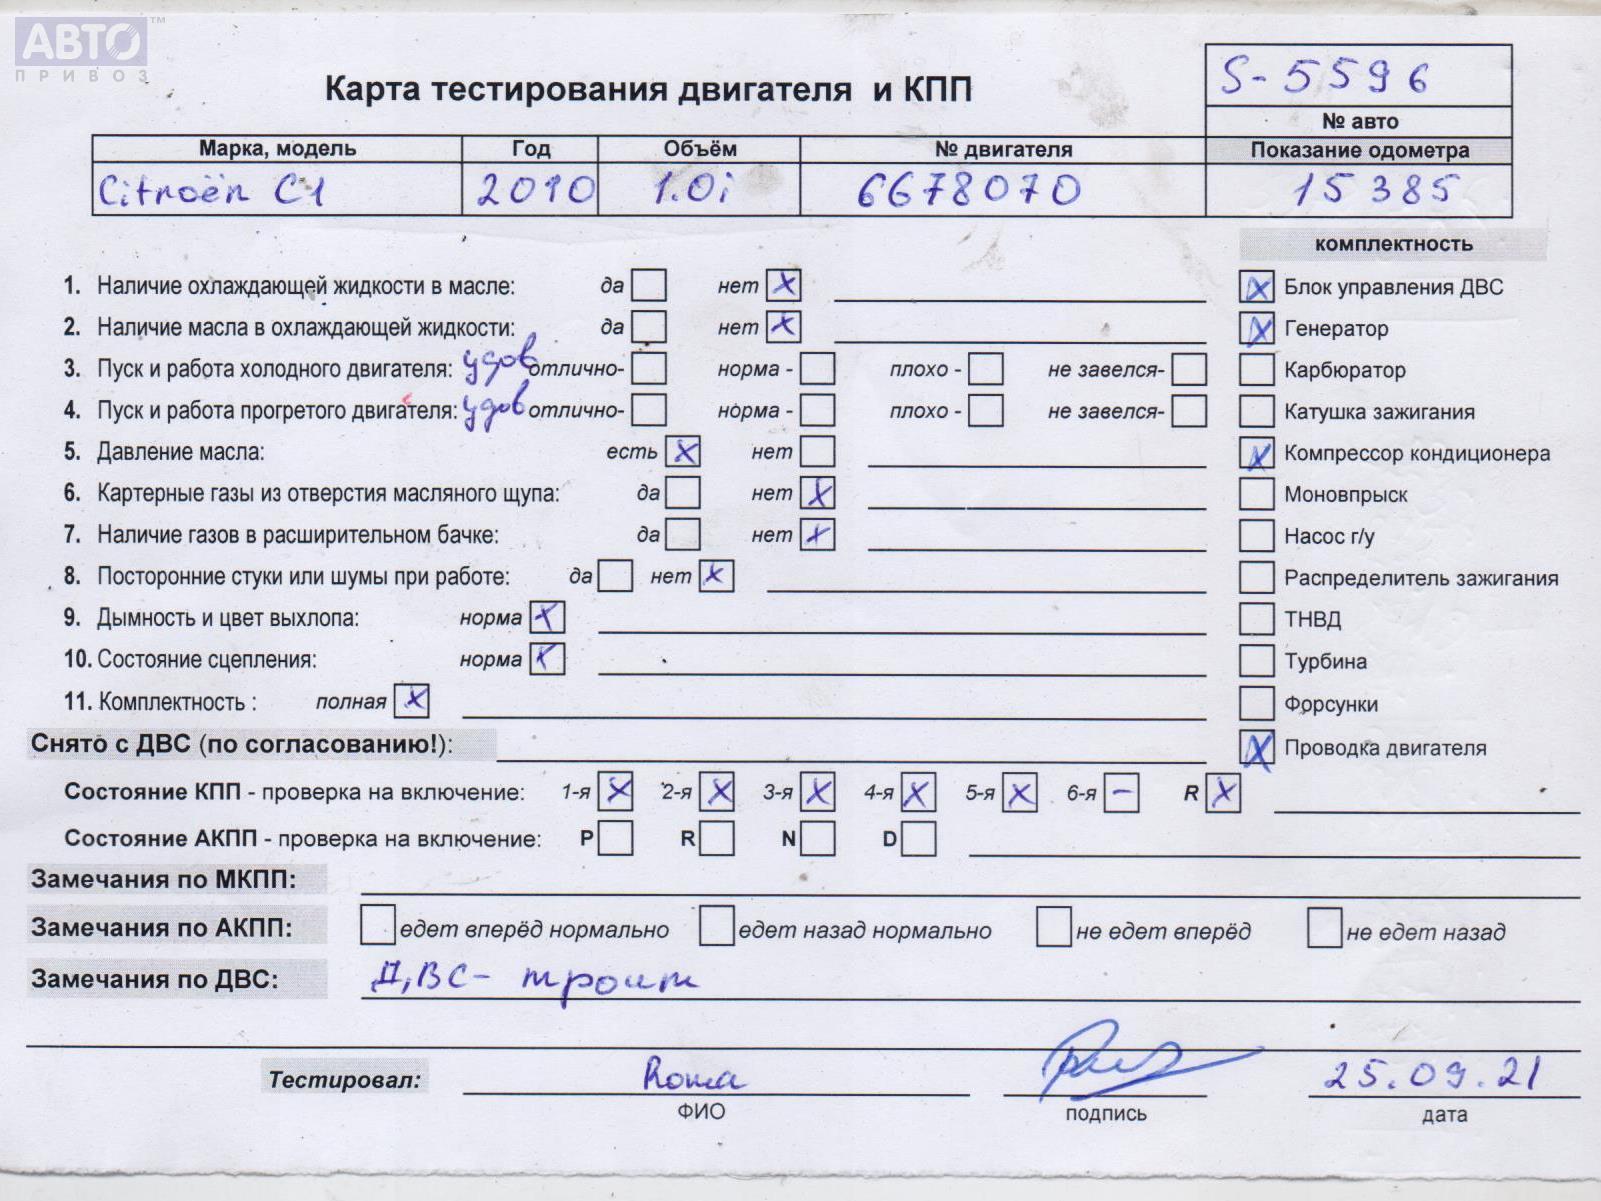 АВТО™
ПРИВОЗ
Карта тестирования двигателя и КПП
S-5596
№ авто
Марка, модель Год Объём № двигателя Показание одометра
Citroën C1 2010 1.0i 6678070 15385
комплектность
1. Наличие охлаждающей жидкости в масле: да нет X Блок управления ДВС X
2. Наличие масла в охлаждающей жидкости: да нет X Генератор X
3. Пуск и работа холодного двигателя: удов отлично- норма - плохо - не завелся- Карбюратор
4. Пуск и работа прогретого двигателя: удов отлично- норма - плохо - не завелся- Катушка зажигания
5. Давление масла: есть X нет X Компрессор кондиционера
6. Картерные газы из отверстия масляного щупа: да нет X Моновпрыск
7. Наличие газов в расширительном бачке: да нет X Насос г/у
8. Посторонние стуки или шумы при работе: да нет X Распределитель зажигания
9. Дымность и цвет выхлопа: норма X ТНВД
10. Состояние сцепления: норма X Турбина
11. Комплектность : полная X Форсунки
Снято с ДВС (по согласованию!): X Проводка двигателя
Состояние КПП - проверка на включение: 1-я X 2-я X 3-я X 4-я X 5-я X 6-я - R X
Состояние АКПП - проверка на включение: P R N D
Замечания по МКПП:
Замечания по АКПП: едет вперёд нормально едет назад нормально не едет вперёд не едет назад
Замечания по ДВС: ДВС - троит
Тестировал: Рома 25.09.21
ФИО подпись дата